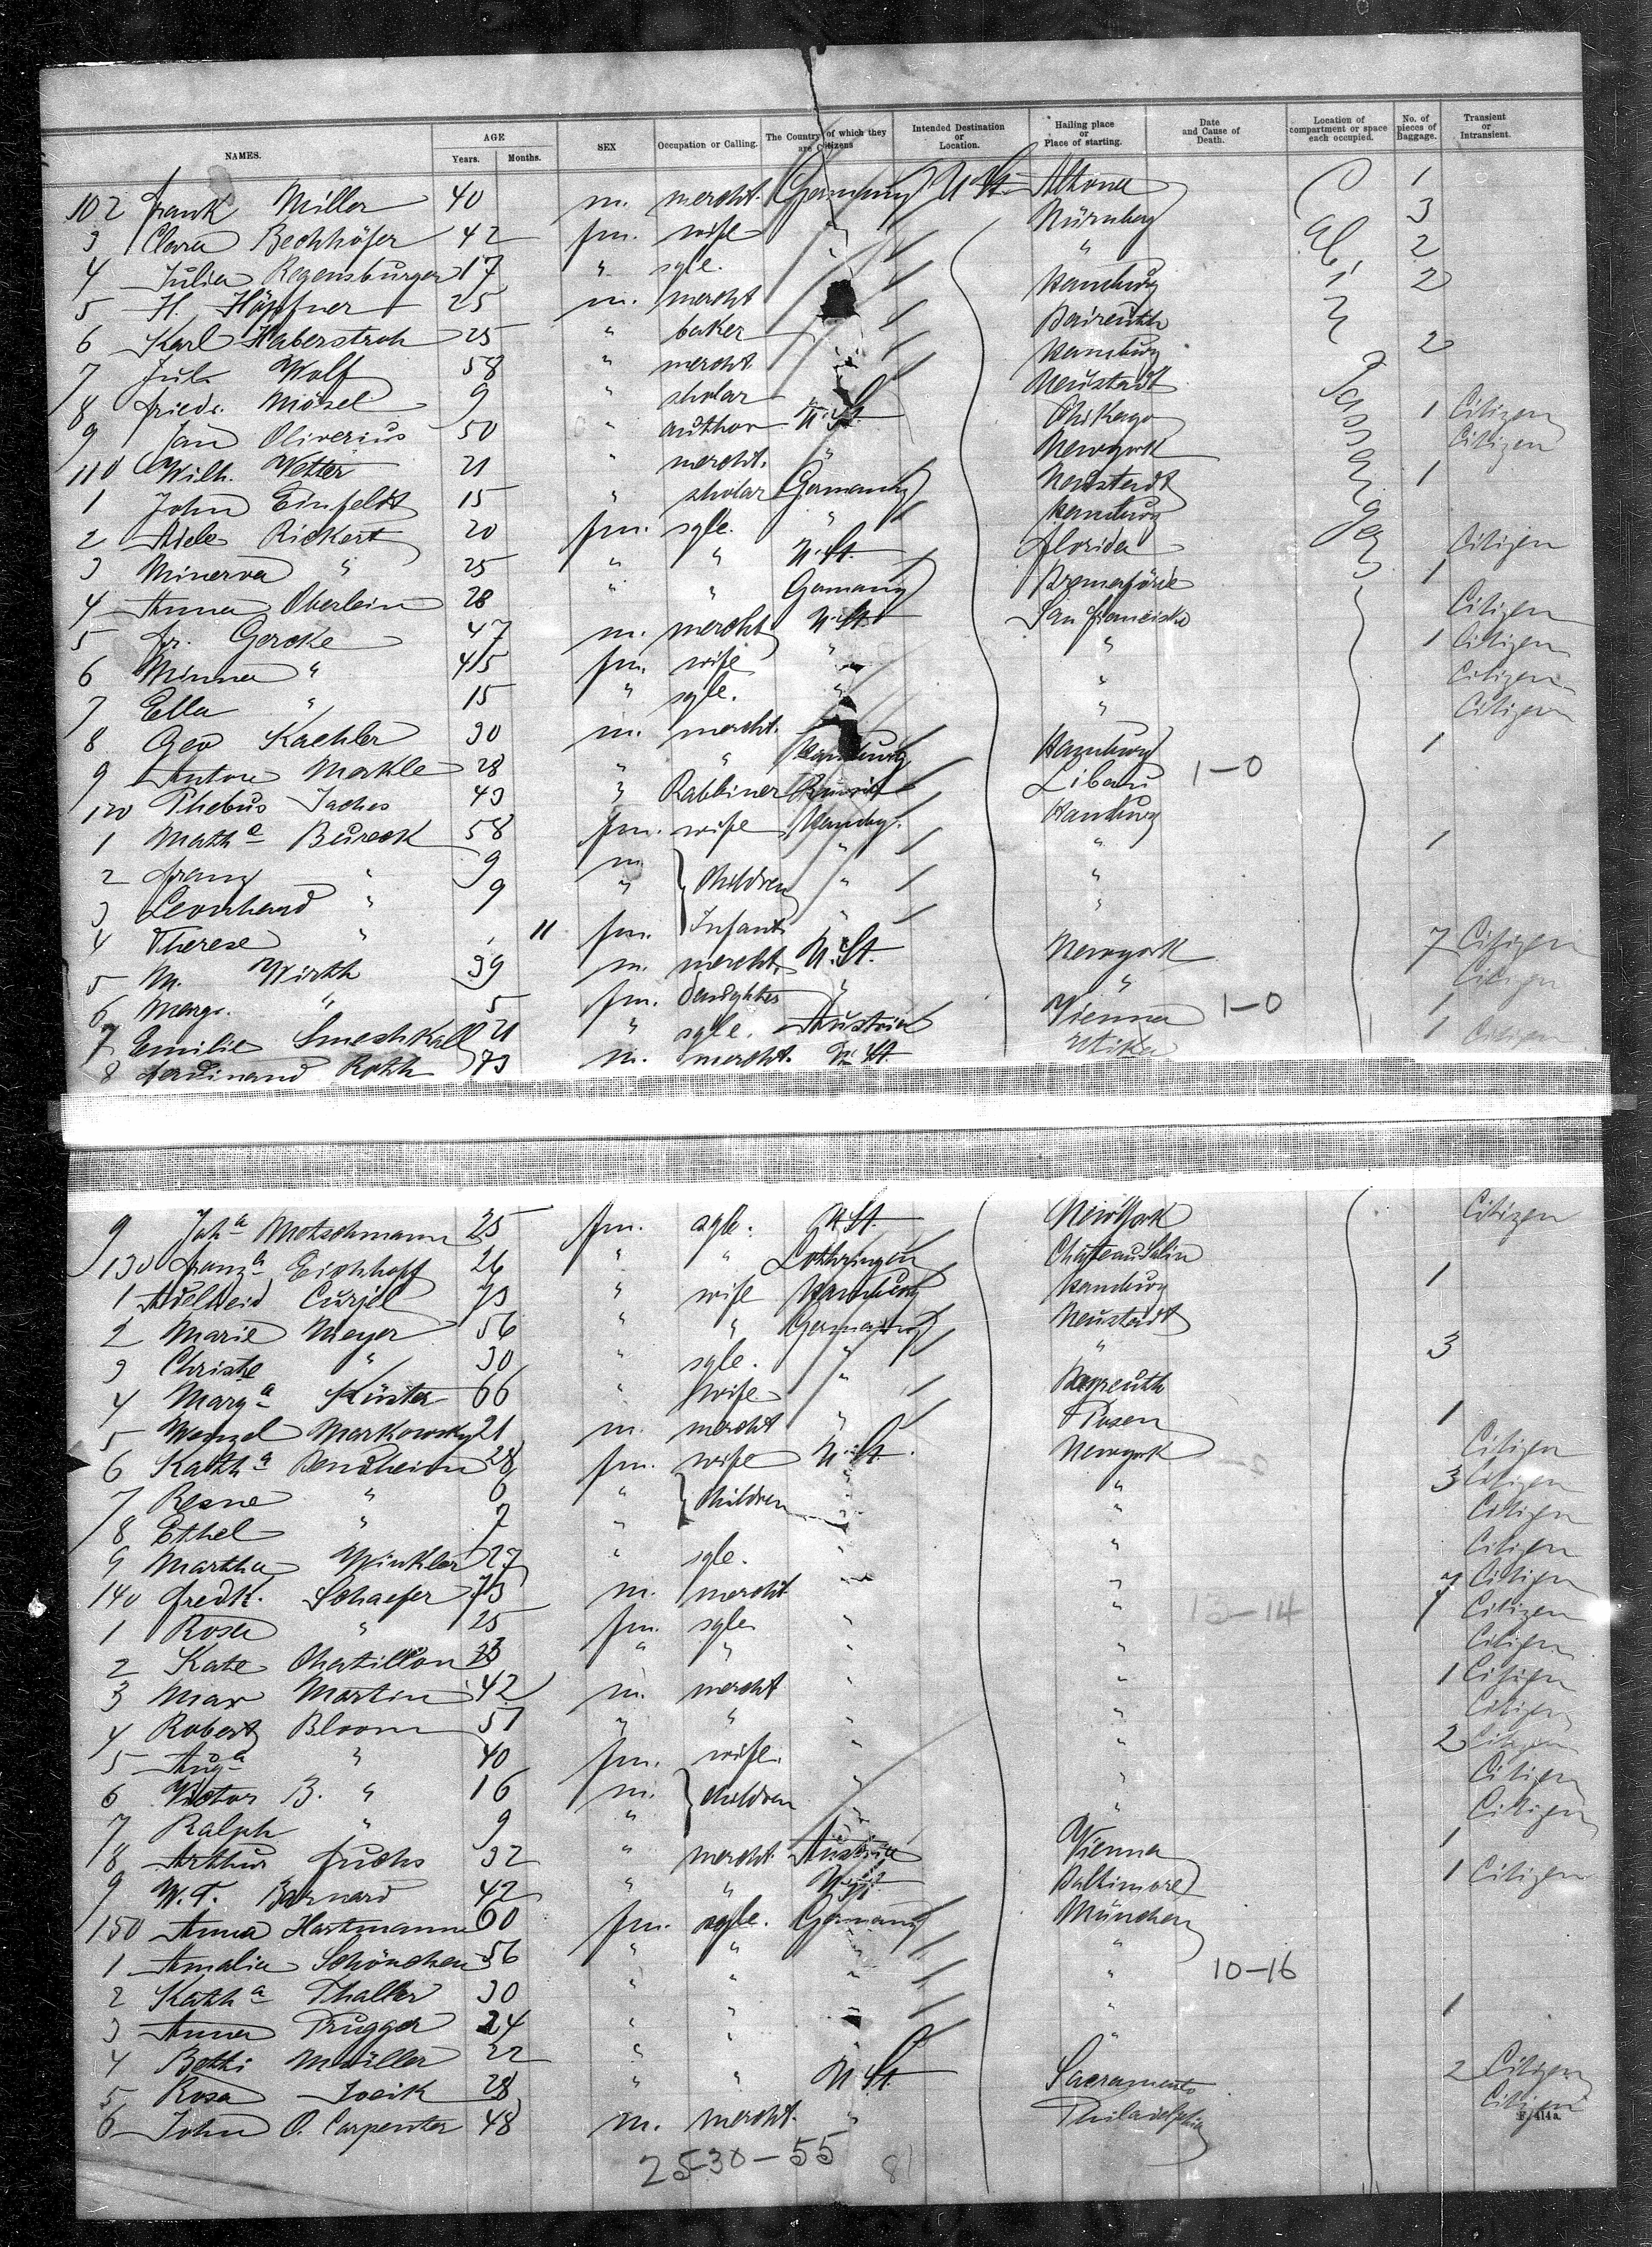 NAMES. AGE Years. Months. SEX Occupation or Calling. The Country of which they are Citizens Intended Destination or Location. Hailing place or Place of starting. Date and Cause of Death. Location of compartment or space each occupied. No. of pieces of Baggage. Transient or Intransient.
102 Frank Miller 40 m. mercht. Germany U. St. Altona 1
3 Clara Bechhöfer 42 fm. wife " Nürnberg 3
4 Julia Regensburger 17 " sgle. " 2
5 H. Höpfner 25 m. mercht Hamburg 2
6 Karl Haberstroh 25 " baker Baireuth
7 Jul. Wolf 58 " mercht Hamburg 2
8 Friedr. Mösel 9 " sholar Neustadt
9 Jan Oliverius 50 " author U. St. Chikago 1 Citizen
110 Wilh. Vetter 21 " mercht. " Newyork Citizen
1 John Einfeldt 15 " sholar Germany Neustadt 1
2 Adele Rickert 20 fm. sgle. " Hamburg
3 Minerva " 25 " " U. St. Florida Citizen
4 Anna Oberlein 28 " " Germany Bremerförde 1
5 Fr. Gercke 47 m. mercht U. St. San Francisko Citizen
6 Minna " 45 fm. wife " " 1 Citizen
7 Ella " 15 " sgle. " " Citizen
8 Geo Kaehler 30 m. mercht. " Citizen
9 Anton Merkle 28 " " Hamburg Hamburg 1
120 Phebus Jaches 43 " Rabbiner Libau 1-0
1 Math a Bureck 58 fm. wife Hambg. Hamburg
2 Franz " 9 m children " " 1
3 Leonhard " 9 " " "
4 Therese " 11 fm. Infant " "
5 M. Wirth 39 m. mercht. U. St. Newyork 7 Citizen
6 Margr. " 5 fm. daughter " " Citizen
7 Emilie Smeshkall 21 " sgle. Austria Vienna 1-0 1
8 Ferdinand Roth 73 m. mercht. U. St. Utika 1 Citizen
9 Joh a Motschmann 25 fm. sgle. U. St. New York Citizen
130 Franz a Eichhoff 26 " " Lothringen Chateau Salin
1 Adelheid Curjel 73 " wife Hamburg Hamburg 1
2 Marie Meyer 56 " " Germany Neustadt
3 Christe " 30 " sgle. " " 3
4 Marg a Küster 66 " wife " Bayreuth
5 Wenzel Markowsky 21 m. mercht " Posen 1
6 Kath a Bendheim 28 fm. wife U. St. Newyork Citizen
7 Resne " 6 " children " " 3 Citizen
8 Ethel " 7 " " " Citizen
9 Martha Winkler 27 " sgle. " " Citizen
140 Fredk. Schaefer 73 m. mercht " " 7 Citizen
1 Rosa " 25 fm. sgle " " 13-14 1 Citizen
2 Kate Chatillon 23 " " " " Citizen
3 Max Martin 42 m. mercht " " 1 Citizen
4 Robert Bloom 51 " " " " Citizen
5 Aug a " 40 fm. wife. " " 2 Citizen
6 Victor B. " 16 m. children " " Citizen
7 Ralph " 9 " " " Citizen
8 Arthur Fuchs 32 " mercht. Austria Vienna 1
9 W. T. Barnard 42 " " U. St. Baltimore 1 Citizen
150 Anna Hartmann 60 fm. sgle. Germany München
1 Amalia Schönchen 56 " " " " 10-16
2 Kath a Thaller 30 " " " "
3 Anna Prugger 24 " " " " 1
4 Betti Müller 22 " " " "
5 Rosa 28 " " U. St. Sacramento 2 Citizen
6 John O. Carpenter 48 m. mercht. " Philadelphia Citizen
F. 414a.
25-30-55 81